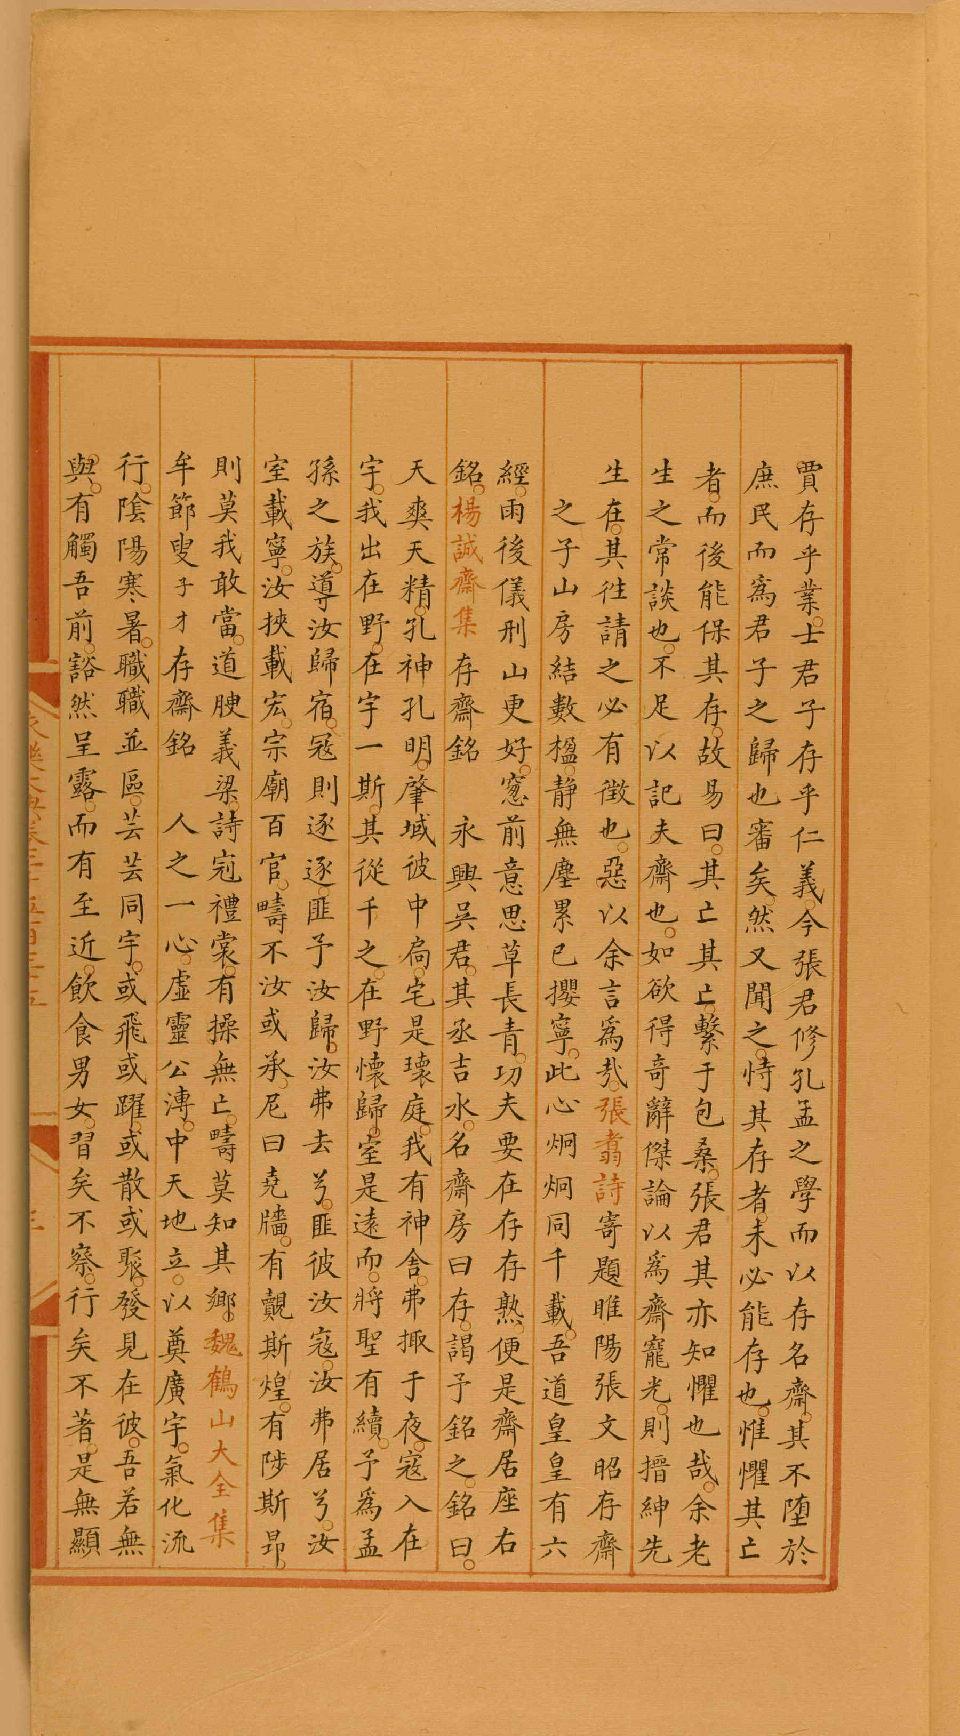 賈存乎業。士君子存乎仁義。今張君修孔孟之學而以存名齋。其不墮於
庶民而爲君子之歸也審矣。然又聞之。恃其存者。未必能存也。惟懼其亡
者。而後能保其存。故易曰。其亡其亡。繫于包桑。張君其亦知懼也哉。余老
生之常談也。不足以記夫齋也。如欲得奇辭傑論以爲齋寵光。則搢紳先
生在。其徃請之必有徵也。惡以余言爲㦲。張翥詩寄題睢陽張文昭存齋
之子山房結數楹。静無塵累已攖寧。此心炯炯同千載。吾道皇皇有六
經。雨後儀刑山更好。窻前意思草長青。功夫要在存存熟。便是齋居座右
銘。楊誠齋集 存齋銘 永興吳君。其丞吉水。名齋房曰存。謁予銘之。銘曰。
天奭天精。孔神孔明。肇域彼中扃。宅是瓌庭。我有神舍。弗掫于夜。寇入在
宇。我出在野。在宇一斯。其從千之。在野懷歸。室是遠而。將聖有續。予爲孟
孫之族。導汝歸宿。寇則逐逐。匪予汝歸。汝弗去兮。匪彼汝寇。汝弗居兮。汝
室載寧。汝挾載宏。宗廟百官。疇不汝或承。尼曰堯牆。有覿斯煌。有陟斯昻。
則莫我敢當。道腴義梁。詩冠禮裳。有操無亡。疇莫知其鄉。魏鶴山大全集
牟節叟子才存齋銘 人之一心。虛靈公溥。中天地立。以奠廣宇。氣化流
行。陰陽寒暑。職職並區。芸芸同宇。或飛或躍。或散或聚。發見在彼。吾若無
與。有觸吾前。豁然呈露。而有至近。飲食男女。習矣不察。行矣不著。是無顯